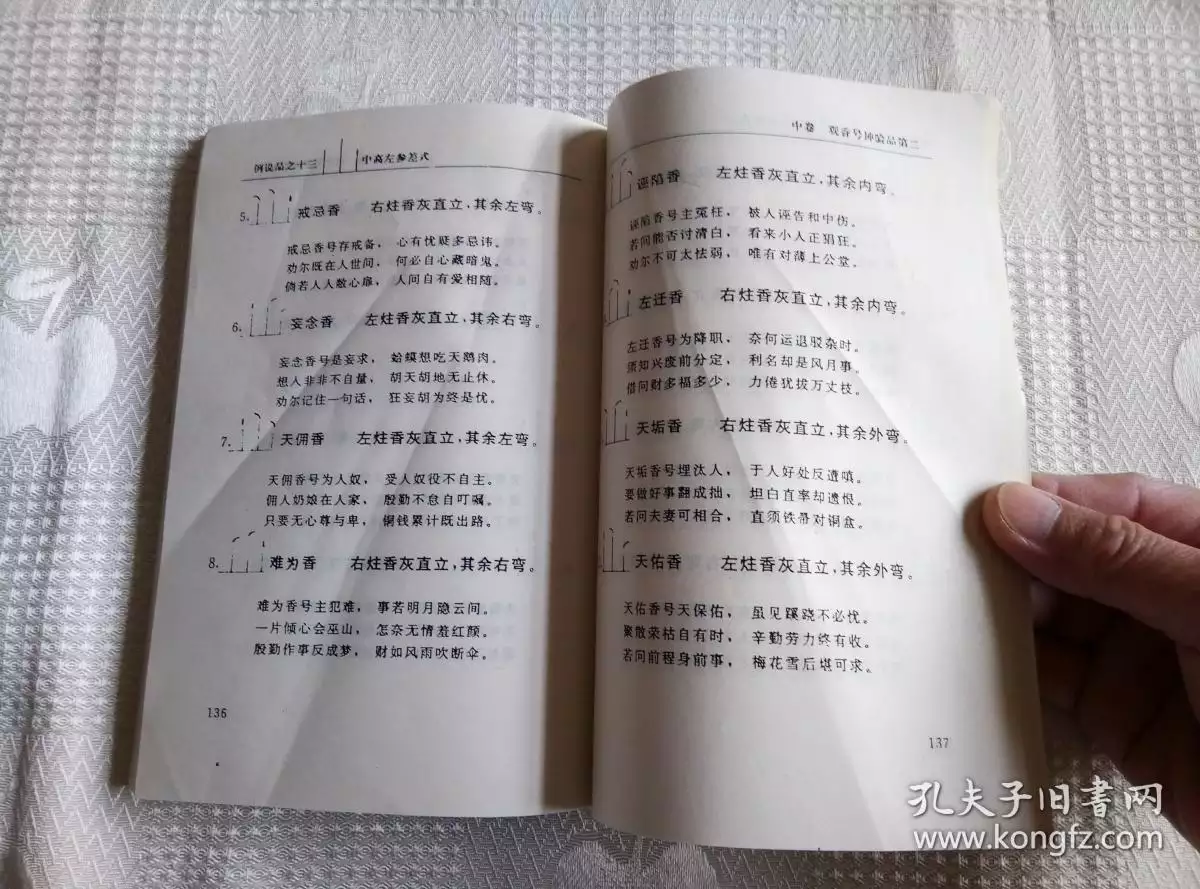 例说品之十三 中高左参差式
5. 戒忌香 右炷香灰直立,其余左弯。
戒忌香号存戒备, 心有忧疑多忌讳。
劝尔既在人世间, 何必自心藏暗鬼。
倘若人人敞心扉, 人间自有爱相随。
6. 妄念香 左炷香灰直立,其余右弯。
妄念香号是妄求, 蛤蟆想吃天鹅肉。
想人非非不自量, 胡天胡地无止休。
劝尔记住一句话, 狂妄胡为终是忧。
7. 天佣香 左炷香灰直立,其余左弯。
天佣香号为人奴, 受人奴役不自主。
佣人奶娘在人家, 殷勤不怠自叮嘱。
只要无心尊与卑, 铜钱累计既出路。
8. 难为香 右炷香灰直立,其余右弯。
难为香号主犯难, 事若明月隐云间。
一片倾心会巫山, 怎奈无情羞红颜。
殷勤作事反成梦, 财如风雨吹断伞。
136
中卷 观香号神验品第二
诬陷香 左炷香灰直立,其余内弯。
诬陷香号主冤枉, 被人诬告和中伤。
若问能否讨清白, 看来小人正猖狂。
劝尔不可太怯弱, 唯有对薄上公堂。
左迁香 右炷香灰直立,其余内弯。
左迁香号为降职, 奈何运退驳杂时。
须知兴废前分定, 利名却是风月事。
借问财多福多少, 力倦犹拔万丈枝。
天垢香 右炷香灰直立,其余外弯。
天垢香号埋汰人, 于人好处反遭嗔。
要做好事翻成拙, 坦白直率却遗恨。
若问夫妻可相合, 直须铁帚对铜盆。
天佑香 左炷香灰直立,其余外弯。
天佑香号天保佑, 虽见蹊跷不必忧。
聚散荣枯自有时, 辛勤劳力终有收。
若问前程身前事, 梅花雪后堪可求。
137
孔夫子旧書网
www.kongfz.com